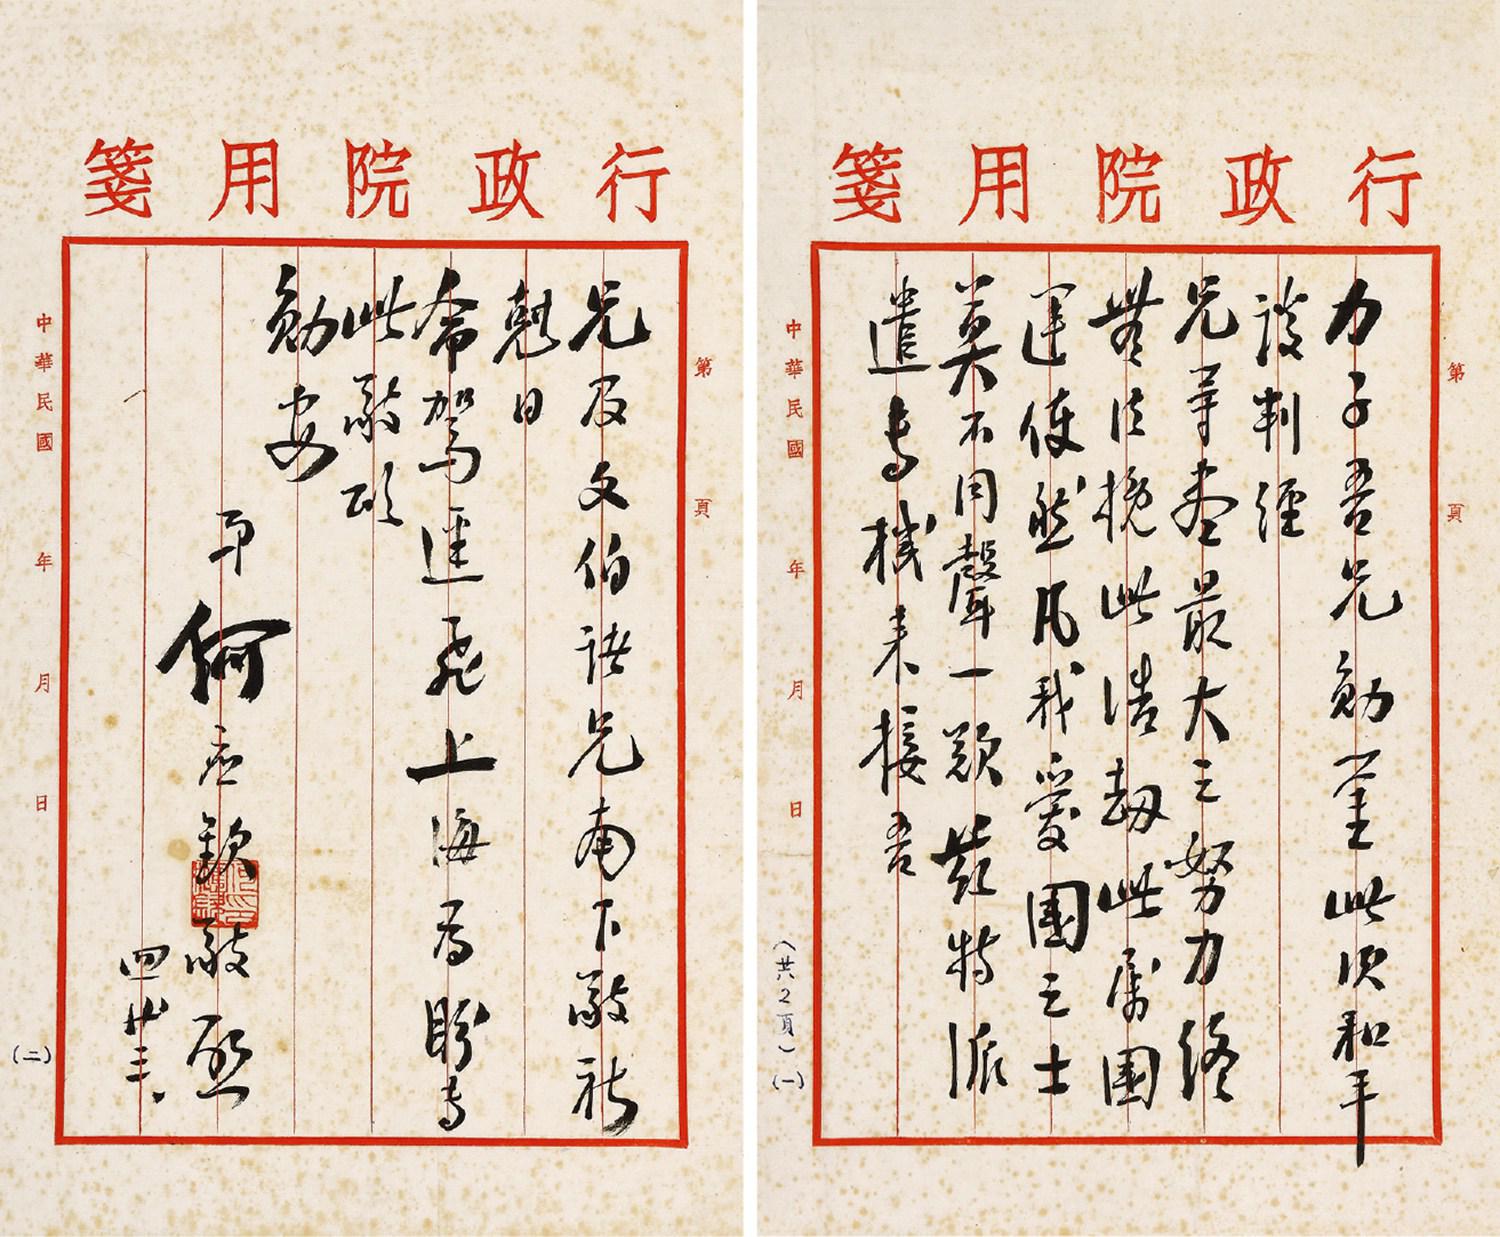 行政院用箋
第 頁
力子吾兄勛鑒此次和平
談判經
兄等盡最大之努力終
無法挽此浩劫此屬國
運使然凡我愛國之士
莫不同聲一歎茲特派
遣專機來接吾
中華民國 年 月 日
(共2頁)(一)
行政院用箋
第 頁
兄及文伯諸兄南下敬祈
尅日
命駕逕飛上海為盼專
此敬頌
勛安
弟何應欽敬啟
四廿三、
中華民國 年 月 日
(二)